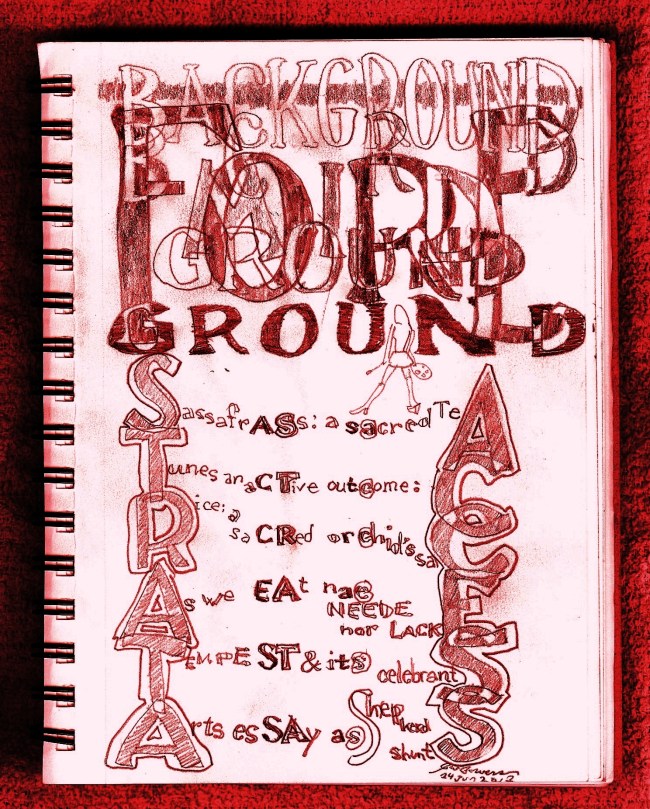 BACKGROUND
GROUND
GROUND
SassafrASs: a sacred Te A
Tunes an aCTive outcome: C
Rice: a
saCRed orchid's say
As we EAt nae
NEEDE
nor LACK
TEMPEST & its celebrant S
Arts esSAy as Shepherd
shunt S
24 JUN 2012